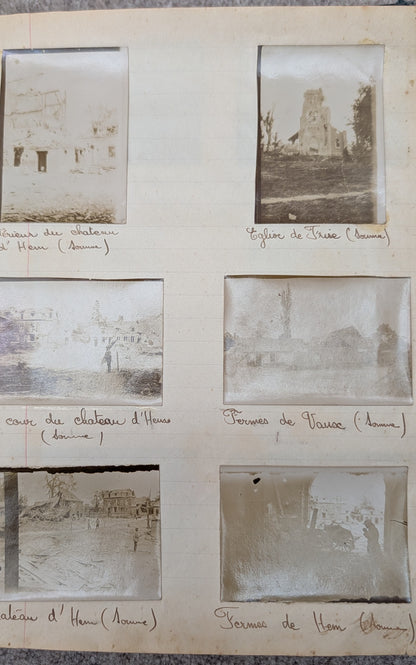 térieur du chateau
d'Hem (Somme)
Eglise de Frise (Somme)
cour du chateau d'Hem
(Somme)
Fermes de Vaux (Somme)
ateau d'Hem (Somme)
Fermes de Hem (Somme)